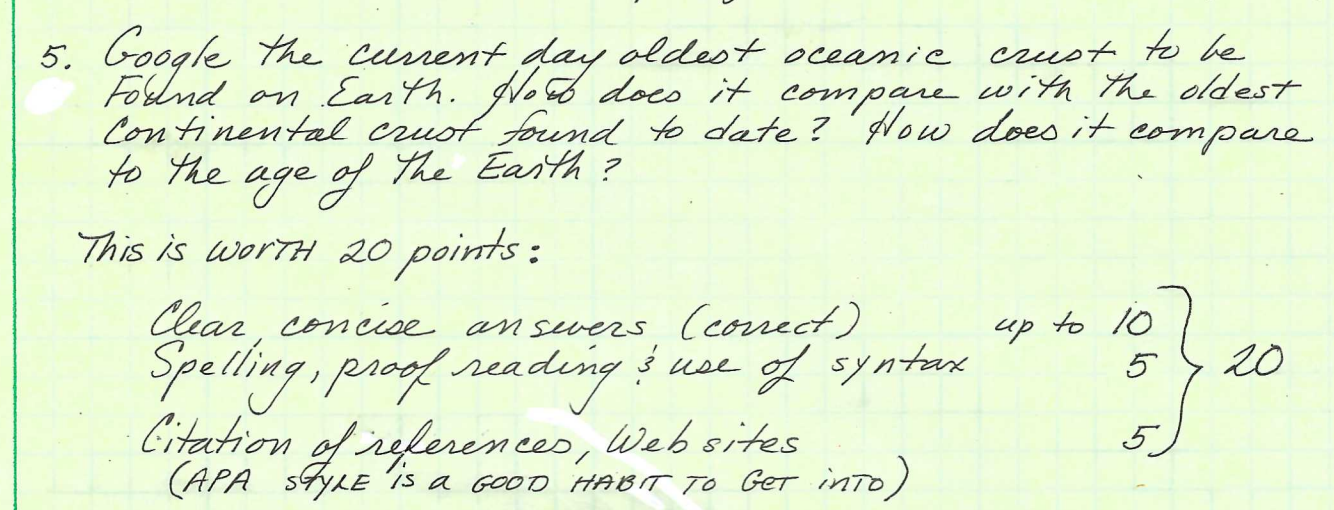 5. Google the current day oldest oceanic crust to be
Found on Earth. How does it compare with the oldest
Continental crust found to date? How does it compare
to the age of the Earth?
This is worth 20 points:
Clear, concise answers (correct) up to 10
Spelling, proof reading & use of syntax 5 20
Citation of references, Web sites 5
(APA STYLE is a GOOD HABIT TO GET INTO)